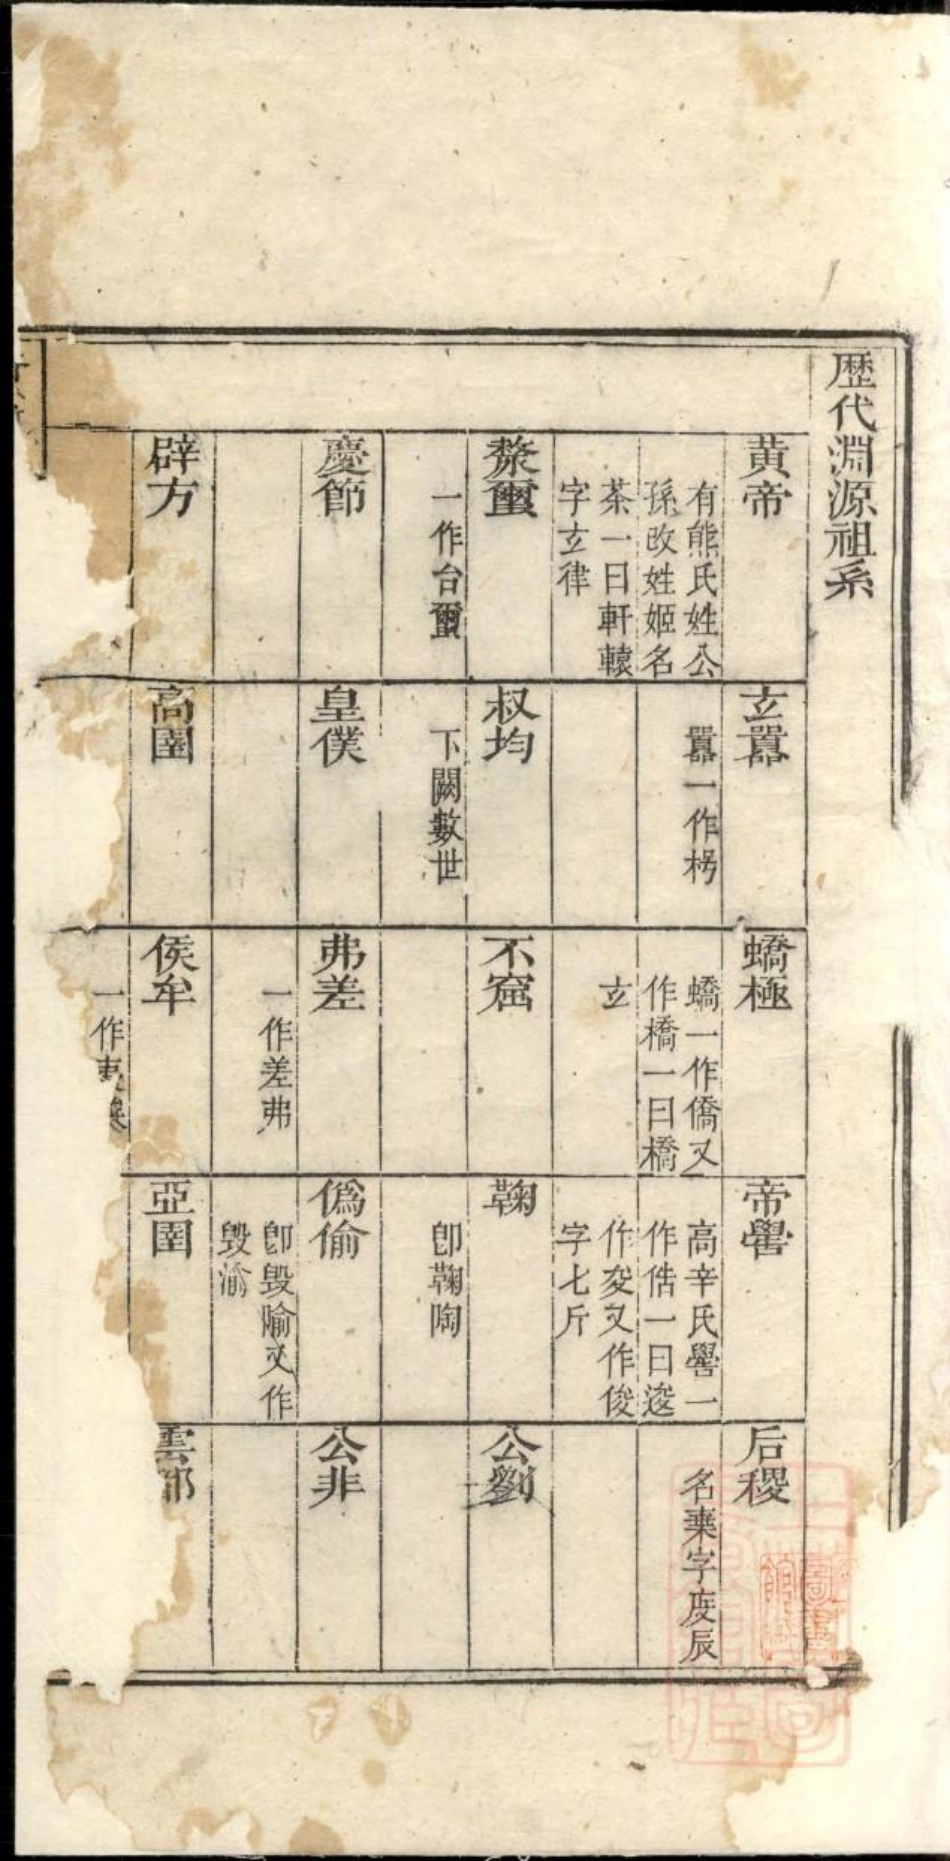 歷代淵源祖系
黄帝
有熊氏姓公
孫改姓姬名
茶一曰軒轅
字玄律
玄囂
囂一作枵
蟜極
蟜一作僑又
作橋一曰橋
玄
帝嚳
高辛氏嚳一
作俈一曰逡
作夋又作俊
字七斤
后稷
名棄字度辰
漦璽
一作台璽
叔均
下闕數世
不窋
鞠
卽鞠陶
公劉
慶節
皇僕
弗差
一作差弗
僞偷
卽毁隃又作
毁渝
公非
辟方
高圉
侯牟
一作
亞圉
雲都